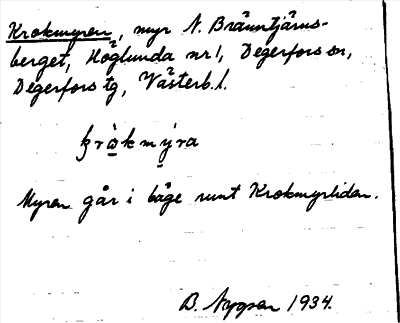 Krokmyren, myr N. Bränntjärns-
berget, Höglunda nr 1, Degerfors sn,
Degerfors tg, Västerb. l.
kròkmýra
Myren går i båge runt Krokmyrlidan.
B. 1934.